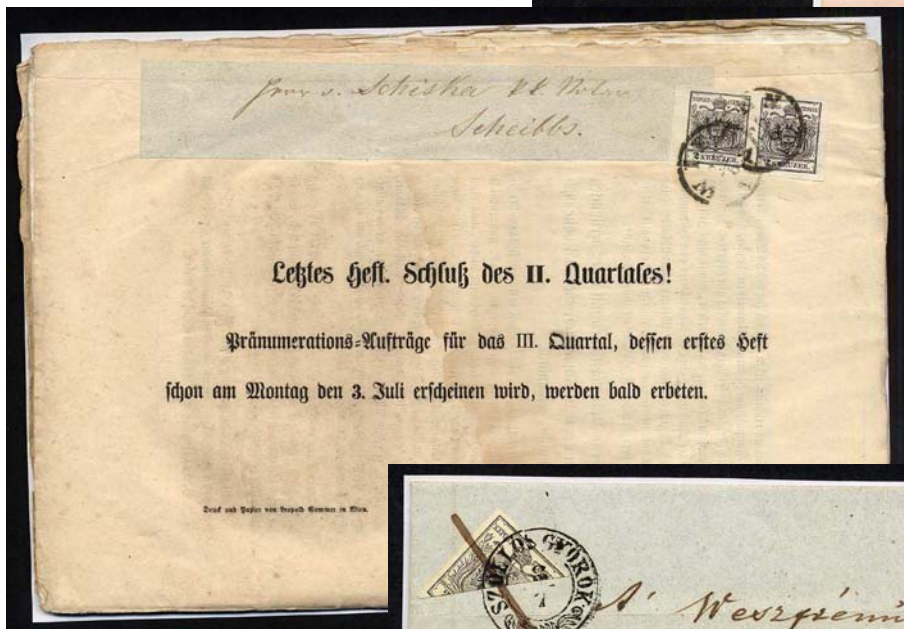 Herr v. Schiska kk Notar
Scheibbs.
2 KREUZER. 2 KREUZER.
WIEN
Letztes Heft. Schluß des II. Quartales!
Pränumerations=Aufträge für das III. Quartal, dessen erstes Heft
schon am Montag den 3. Juli erscheinen wird, werden bald erbeten.
Druck und Papier von Leopold Sommer in Wien.
SZÖLLÖS GYÖRÖK
A'